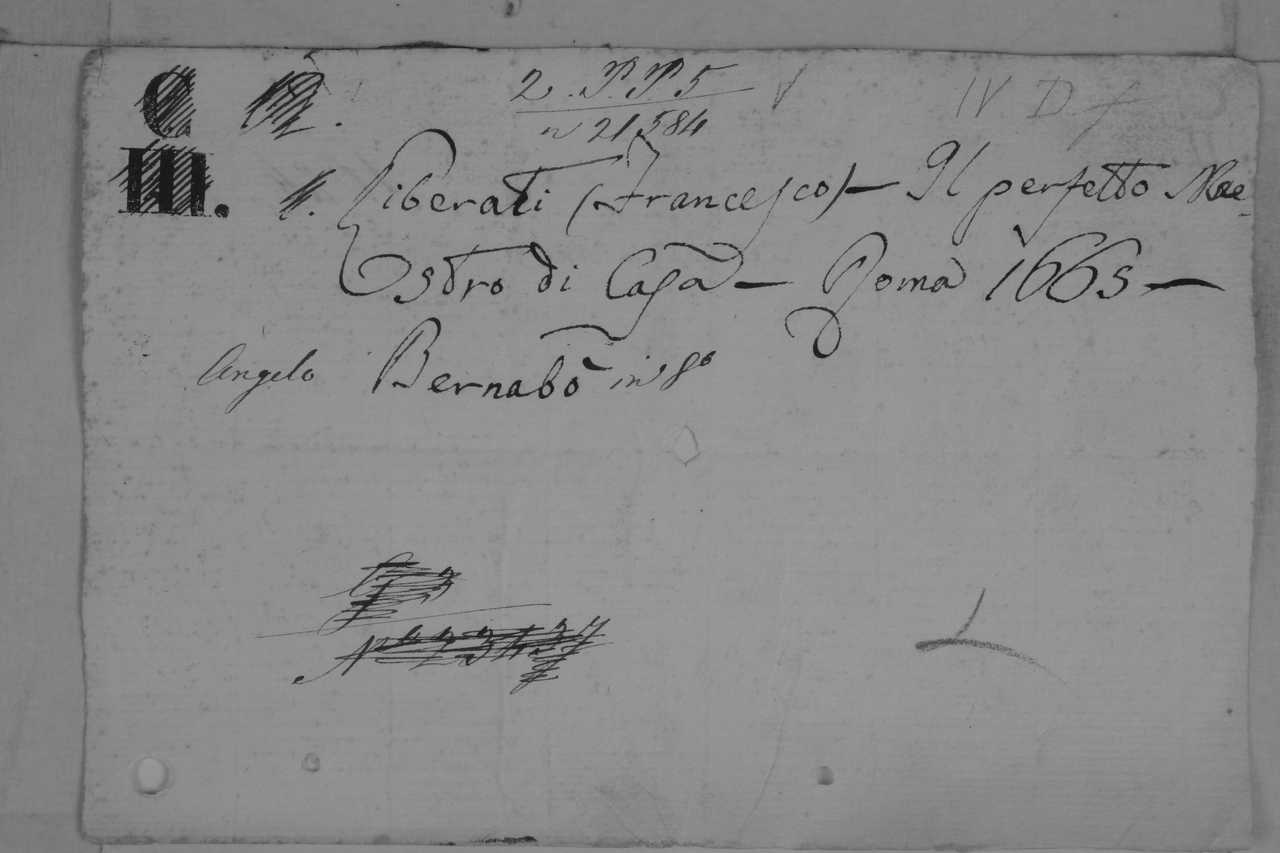 2. PP5
IV D f
n 21584
C
III. 1. Liberati (Francesco) — Il perfetto Mae-
stro di Casa — Roma 1665 —
Angelo Bernabò in 8º